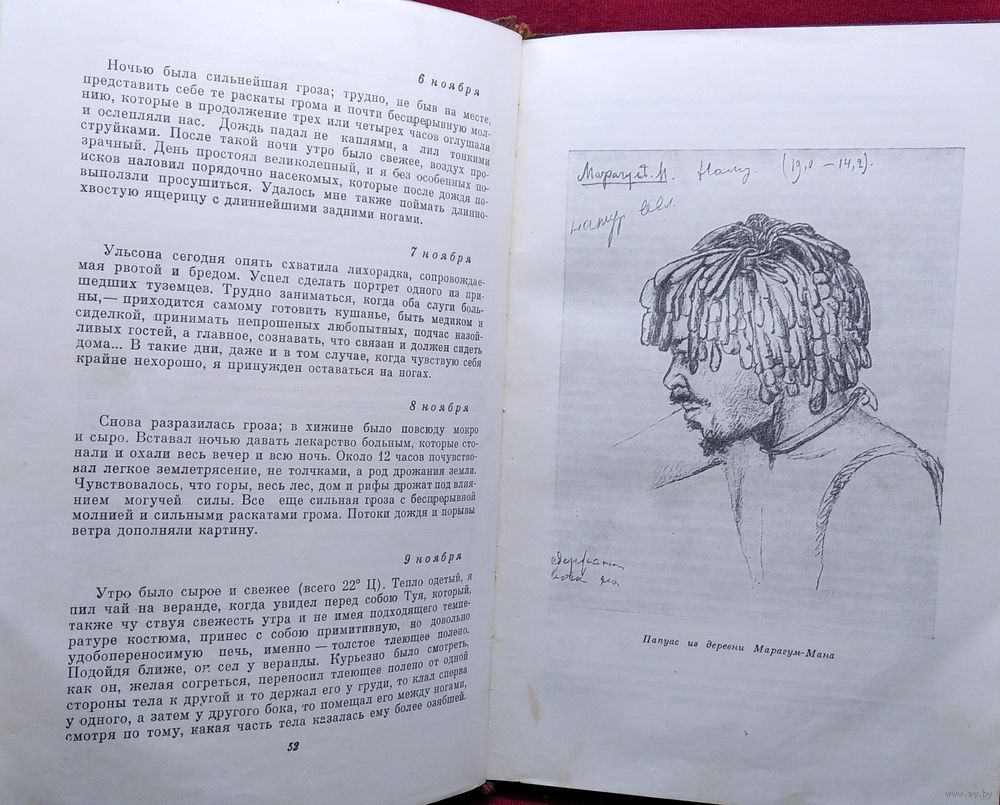 6 ноября
Ночью была сильнейшая гроза; трудно, не быв на месте,
представить себе те раскаты грома и почти беспрерывную мол-
нию, которые в продолжение трех или четырех часов оглушали
и ослепляли нас. Дождь падал не каплями, а лил тонкими
струйками. После такой ночи утро было свежее, воздух про-
зрачный. День простоял великолепный, и я без особенных по-
исков наловил порядочно насекомых, которые после дождя по-
выползли просушиться. Удалось мне также поймать длинно-
хвостую ящерицу с длиннейшими задними ногами.
7 ноября
Ульсона сегодня опять схватила лихорадка, сопровождае-
мая рвотой и бредом. Успел сделать портрет одного из при-
шедших туземцев. Трудно заниматься, когда оба слуги боль-
ны,— приходится самому готовить кушанье, быть медиком и
сиделкой, принимать непрошеных любопытных, подчас назой-
ливых гостей, а главное, сознавать, что связан и должен сидеть
дома... В такие дни, даже и в том случае, когда чувствую себя
крайне нехорошо, я принужден оставаться на ногах.
8 ноября
Снова разразилась гроза; в хижине было повсюду мокро
и сыро. Вставал ночью давать лекарство больным, которые сто-
нали и охали весь вечер и всю ночь. Около 12 часов почувство-
вал легкое землетрясение, не толчками, а род дрожания земли.
Чувствовалось, что горы, весь лес, дом и рифы дрожат под влия-
нием могучей силы. Все еще сильная гроза с беспрерывной
молнией и сильными раскатами грома. Потоки дождя и порывы
ветра дополняли картину.
9 ноября
Утро было сырое и свежее (всего 22° Ц). Тепло одетый, я
пил чай на веранде, когда увидел перед собою Туя, который,
также чу ствуя свежесть утра и не имея подходящего темпе-
ратуре костюма, принес с собою примитивную, но довольно
удобопереносимую печь, именно — толстое тлеющее полено.
Подойдя ближе, он сел у веранды. Курьезно было смотреть,
как он, желая согреться, переносил тлеющее полено от одной
стороны тела к другой и то держал его у груди, то клал сперва
у одного, а затем у другого бока, то помещал его между ногами,
смотря по тому, какая часть тела казалась ему более озябшей.
52
Папуас из деревни Марагум-Мана
www.ay.by